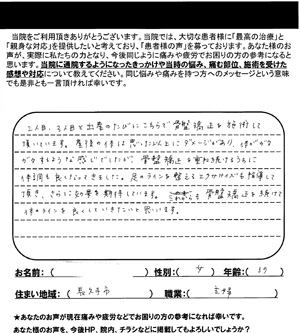 当院をご利用頂きありがとうございます。当院では、大切な患者様に「最高の治療」と
「親身な対応」を提供したいと考えており、「患者様の声」を募っております。あなた様のお
声が、実際に私たちの力となり、今後同じように痛みや疲労でお困りの方の参考になると
思います。当院に通院するようになったきっかけや当時の悩み、痛む部位、施術を受けた
感想や対応について教えてください。同じ悩みや痛みを持つ方へのメッセージという意味
でも是非とも一言頂ければ幸いです。
2人目、3人目と出産のたびにこちらで骨盤矯正を施術して
頂いています。産後の体は思った以上にダメージがあり、体がガタ
ガタするような感じでしたが、骨盤矯正を重ね続けるうちに
体調も良くなってきました。足のラインを整えるエクササイズも指導して
頂き、さらに効果を期待しています。これからも骨盤矯正を続けて
体のラインを良くしていきたいと思います。
お名前：（　　　　）性別：（女）年齢：（37）
住まい地域：（長久手市）職業：（主婦）
★あなたのお声が現在痛みや疲労などでお困りの方の参考になれば幸いです。
あなた様のお声を、今後HP、院内、チラシなどに掲載してもよろしいでしょうか？